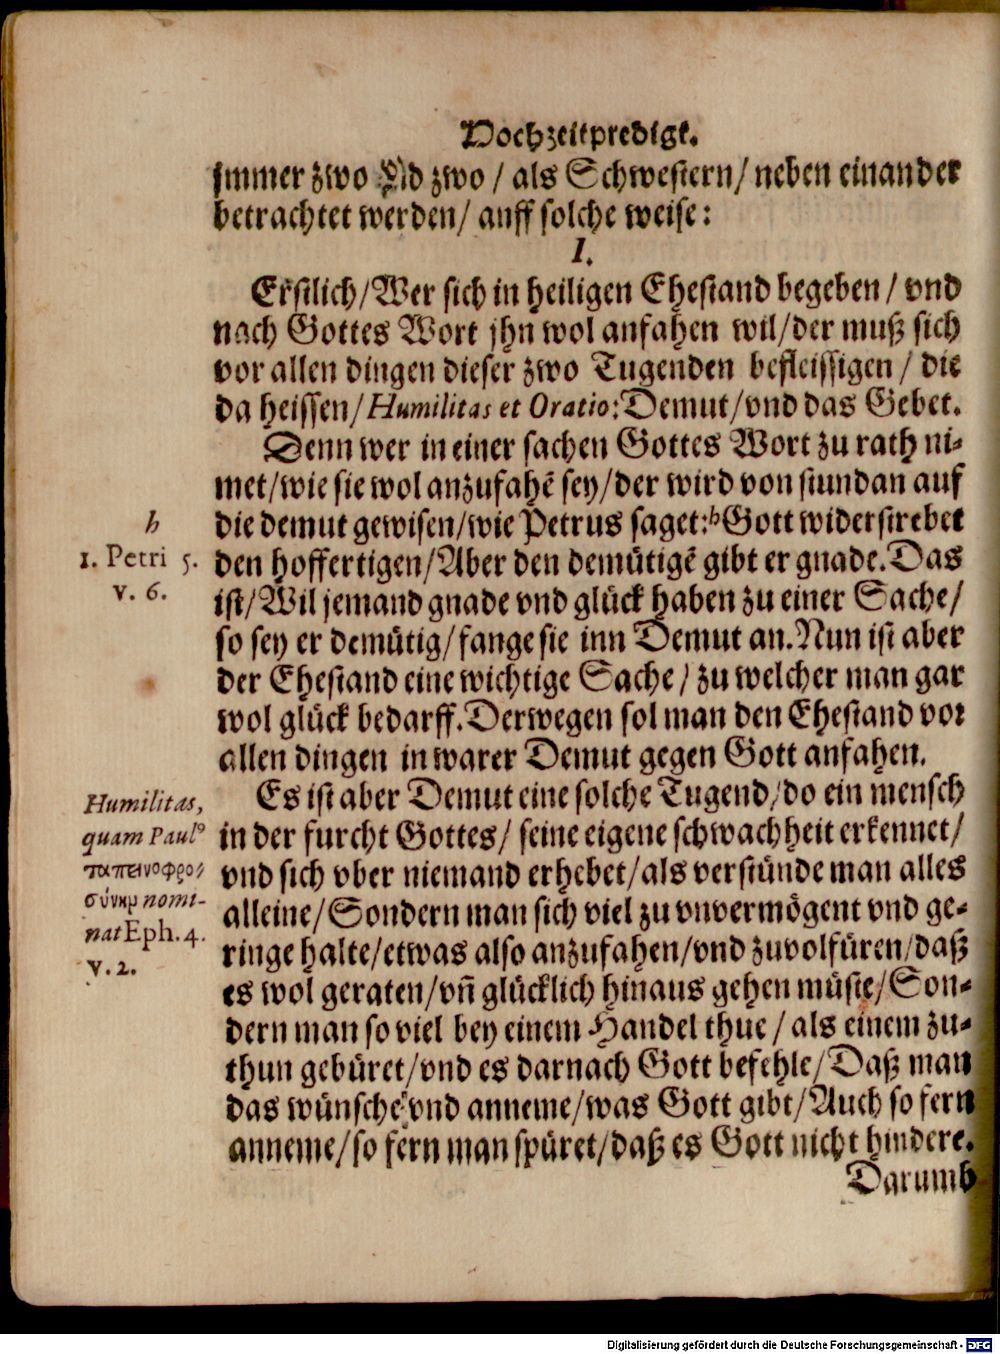 Hochzeitpredigt.
jmmer zwo vnd zwo / als Schwestern / neben einander
betrachtet werden / auff solche weise:
I.
Erstlich / Wer sich in heiligen Ehestand begeben / vnd
nach Gottes Wort jhn wol anfahen wil / der muß sich
vor allen dingen dieser zwo Tugenden befleissigen / die
da heissen / Humilitas et Oratio: Demut / vnd das Gebet.
Denn wer in einer sachen Gottes Wort zu rath ni-
met / wie sie wol anzufahẽ sey / der wird von stundan auf
h
die demut gewisen / wie Petrus saget: ʰ Gott widerstrebet
1. Petri 5.
den hoffertigen / Aber den demütigẽ gibt er gnade. Das
v. 6.
ist / Wil jemand gnade vnd glück haben zu einer Sache /
so sey er demütig / fange sie inn Demut an. Nun ist aber
der Ehestand eine wichtige Sache / zu welcher man gar
wol glück bedarff. Derwegen sol man den Ehestand vor
allen dingen in warer Demut gegen Gott anfahen.
Humilitas,
quam Paulꝰ
ταπεινοφρο-
σύνημ nomi-
nat Eph. 4.
v. 2.
Es ist aber Demut eine solche Tugend / do ein mensch
in der furcht Gottes / seine eigene schwachheit erkennet /
vnd sich vber niemand erhebet / als verstünde man alles
alleine / Sondern man sich viel zu vnvermögent vnd ge-
ringe halte / etwas also anzufahen / vnd zuvolfüren / daß
es wol geraten / vñ glücklich hinaus gehen müste / Son-
dern man so viel bey einem Handel thue / als einem zu-
thun gebüret / vnd es darnach Gott befehle / Daß man
das wünsche vnd anneme / was Gott gibt / Auch so fern
anneme / so fern man spüret / daß es Gott nicht hindere.
Darumb
Digitalisierung gefördert durch die Deutsche Forschungsgemeinschaft - DFG